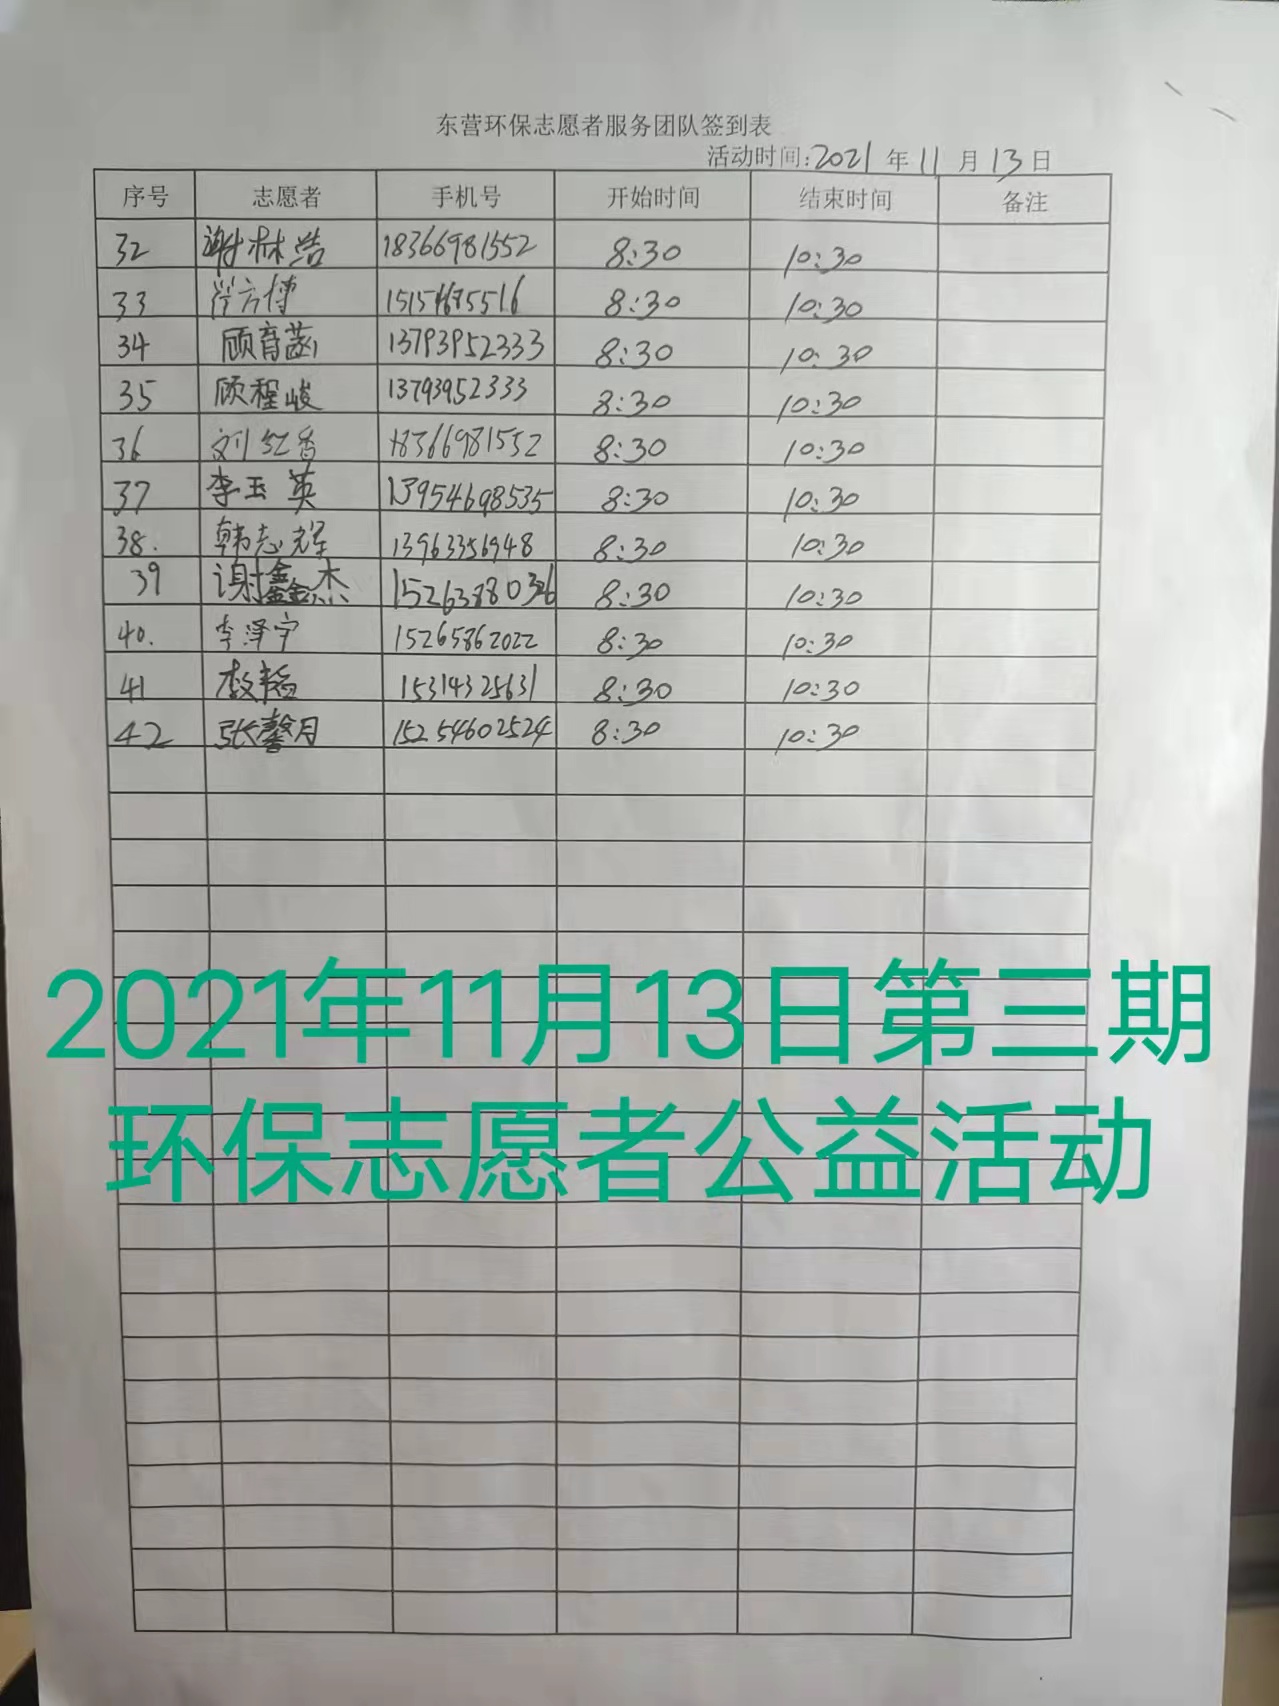 东营环保志愿者服务团队签到表
活动时间:2021年11月13日
序号 志愿者 手机号 开始时间 结束时间 备注
32 谢林浩 18366981552 8:30 10:30
33 方博 8:30 10:30
34 顾育菡 13793952333 8:30 10:30
35 顾程峻 13793952333 8:30 10:30
36 刘红香 18366981552 8:30 10:30
37 李玉英 13954698535 8:30 10:30
38. 韩志辉 13963356948 8:30 10:30
39 谢鑫杰 15263880326 8:30 10:30
40. 李泽宇 15265862022 8:30 10:30
41 15314325631 8:30 10:30
42 张馨月 15254602524 8:30 10:30
2021年11月13日第三期
环保志愿者公益活动